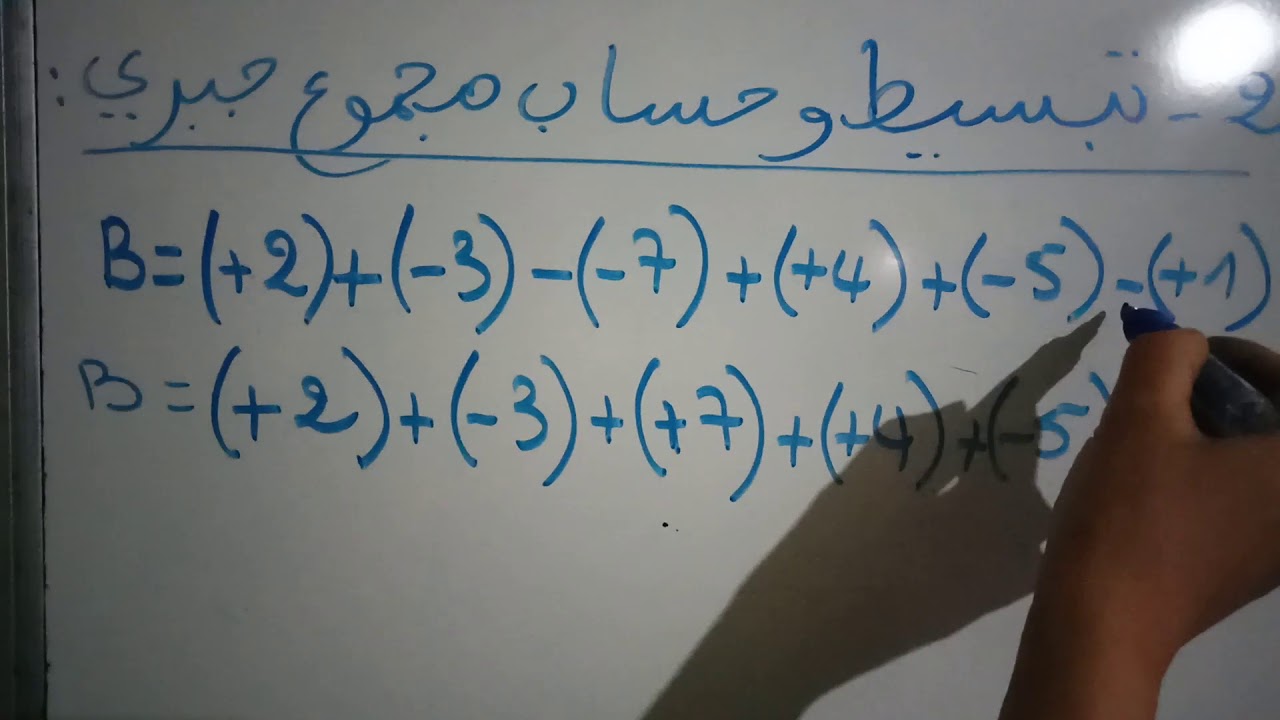 2 - تبسيط و حساب مجموع جبري :
B = (+2) + (-3) - (-7) + (+4) + (-5) - (+1)
B = (+2) + (-3) + (+7) + (+4) + (-5)